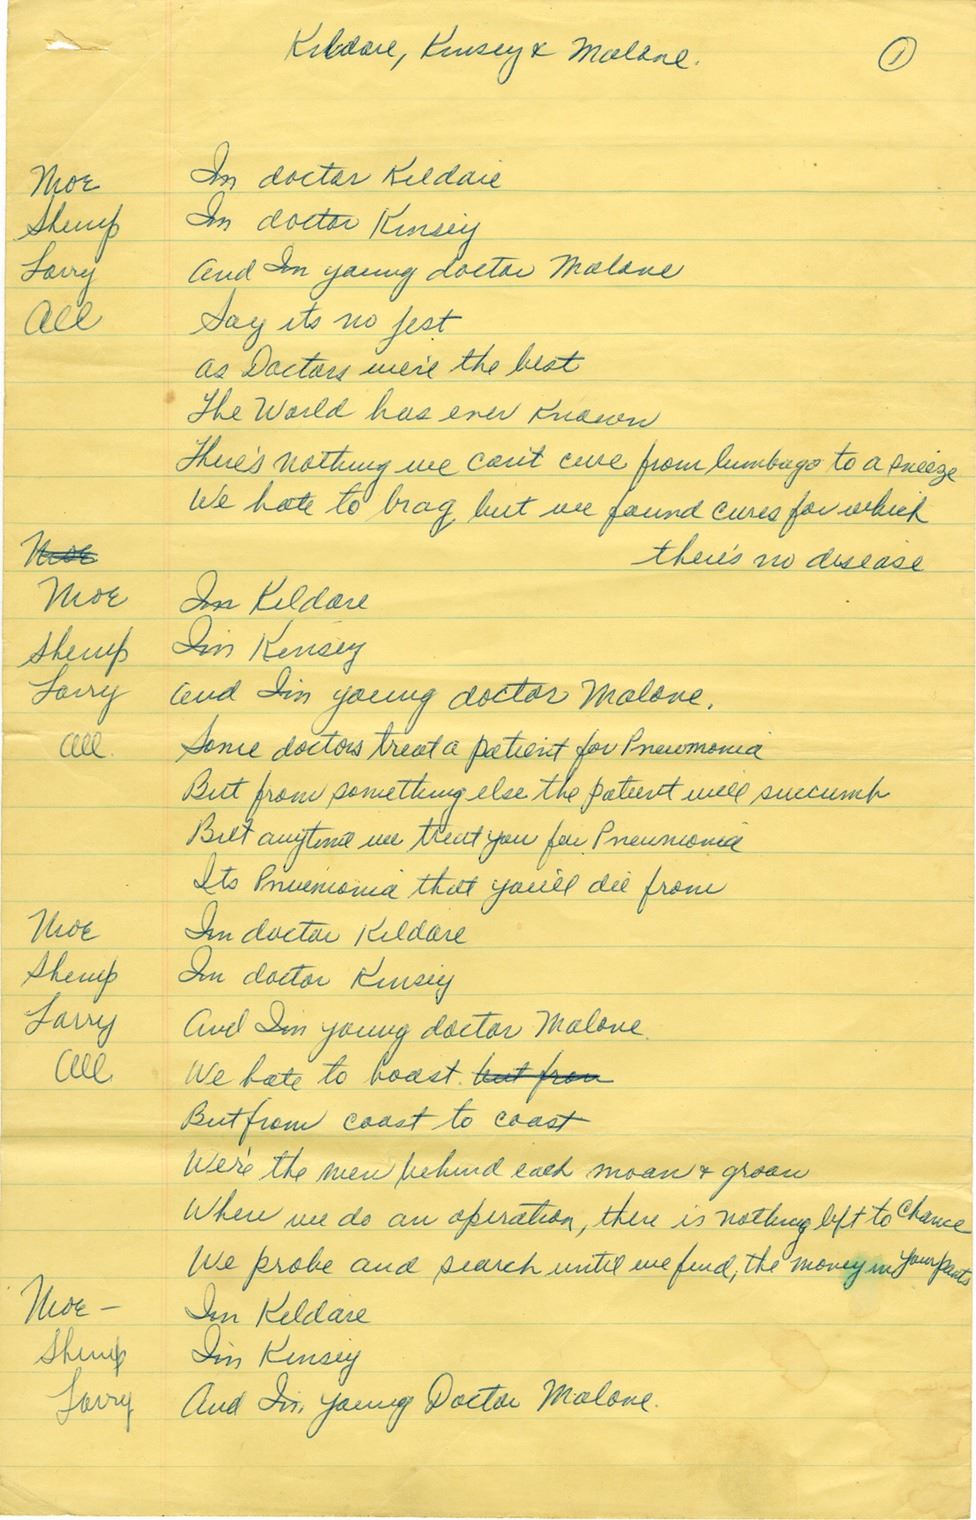 Kildare, Kinsey & Malone. 1
Moe Im doctor Kildare
Shemp Im doctor Kinsey
Larry And Im young doctor Malone
All Say its no jest
as Doctors we're the best
The World has ever known
There's nothing we can't cure from lumbago to a sneeze
We hate to brag, but we found cures for which
Moe there's no disease
Moe Im Kildare
Shemp I'm Kinsey
Larry and I'm young doctor Malone.
All. Some doctors treat a patient for Pneumonia
But from something else the patient will succumb
But anytime we treat you for Pneumonia
Its Pneumonia that you'll die from
Moe Im doctor Kildare
Shemp Im doctor Kinsey
Larry And I'm young doctor Malone.
All We hate to boast. but from
But from coast to coast
We're the men behind each moan & groan
When we do an operation, there is nothing left to Chance
We probe and search until we find, the money in your pants
Moe — Im Kildare
Shemp I'm Kinsey
Larry And I'm, young Doctor Malone.